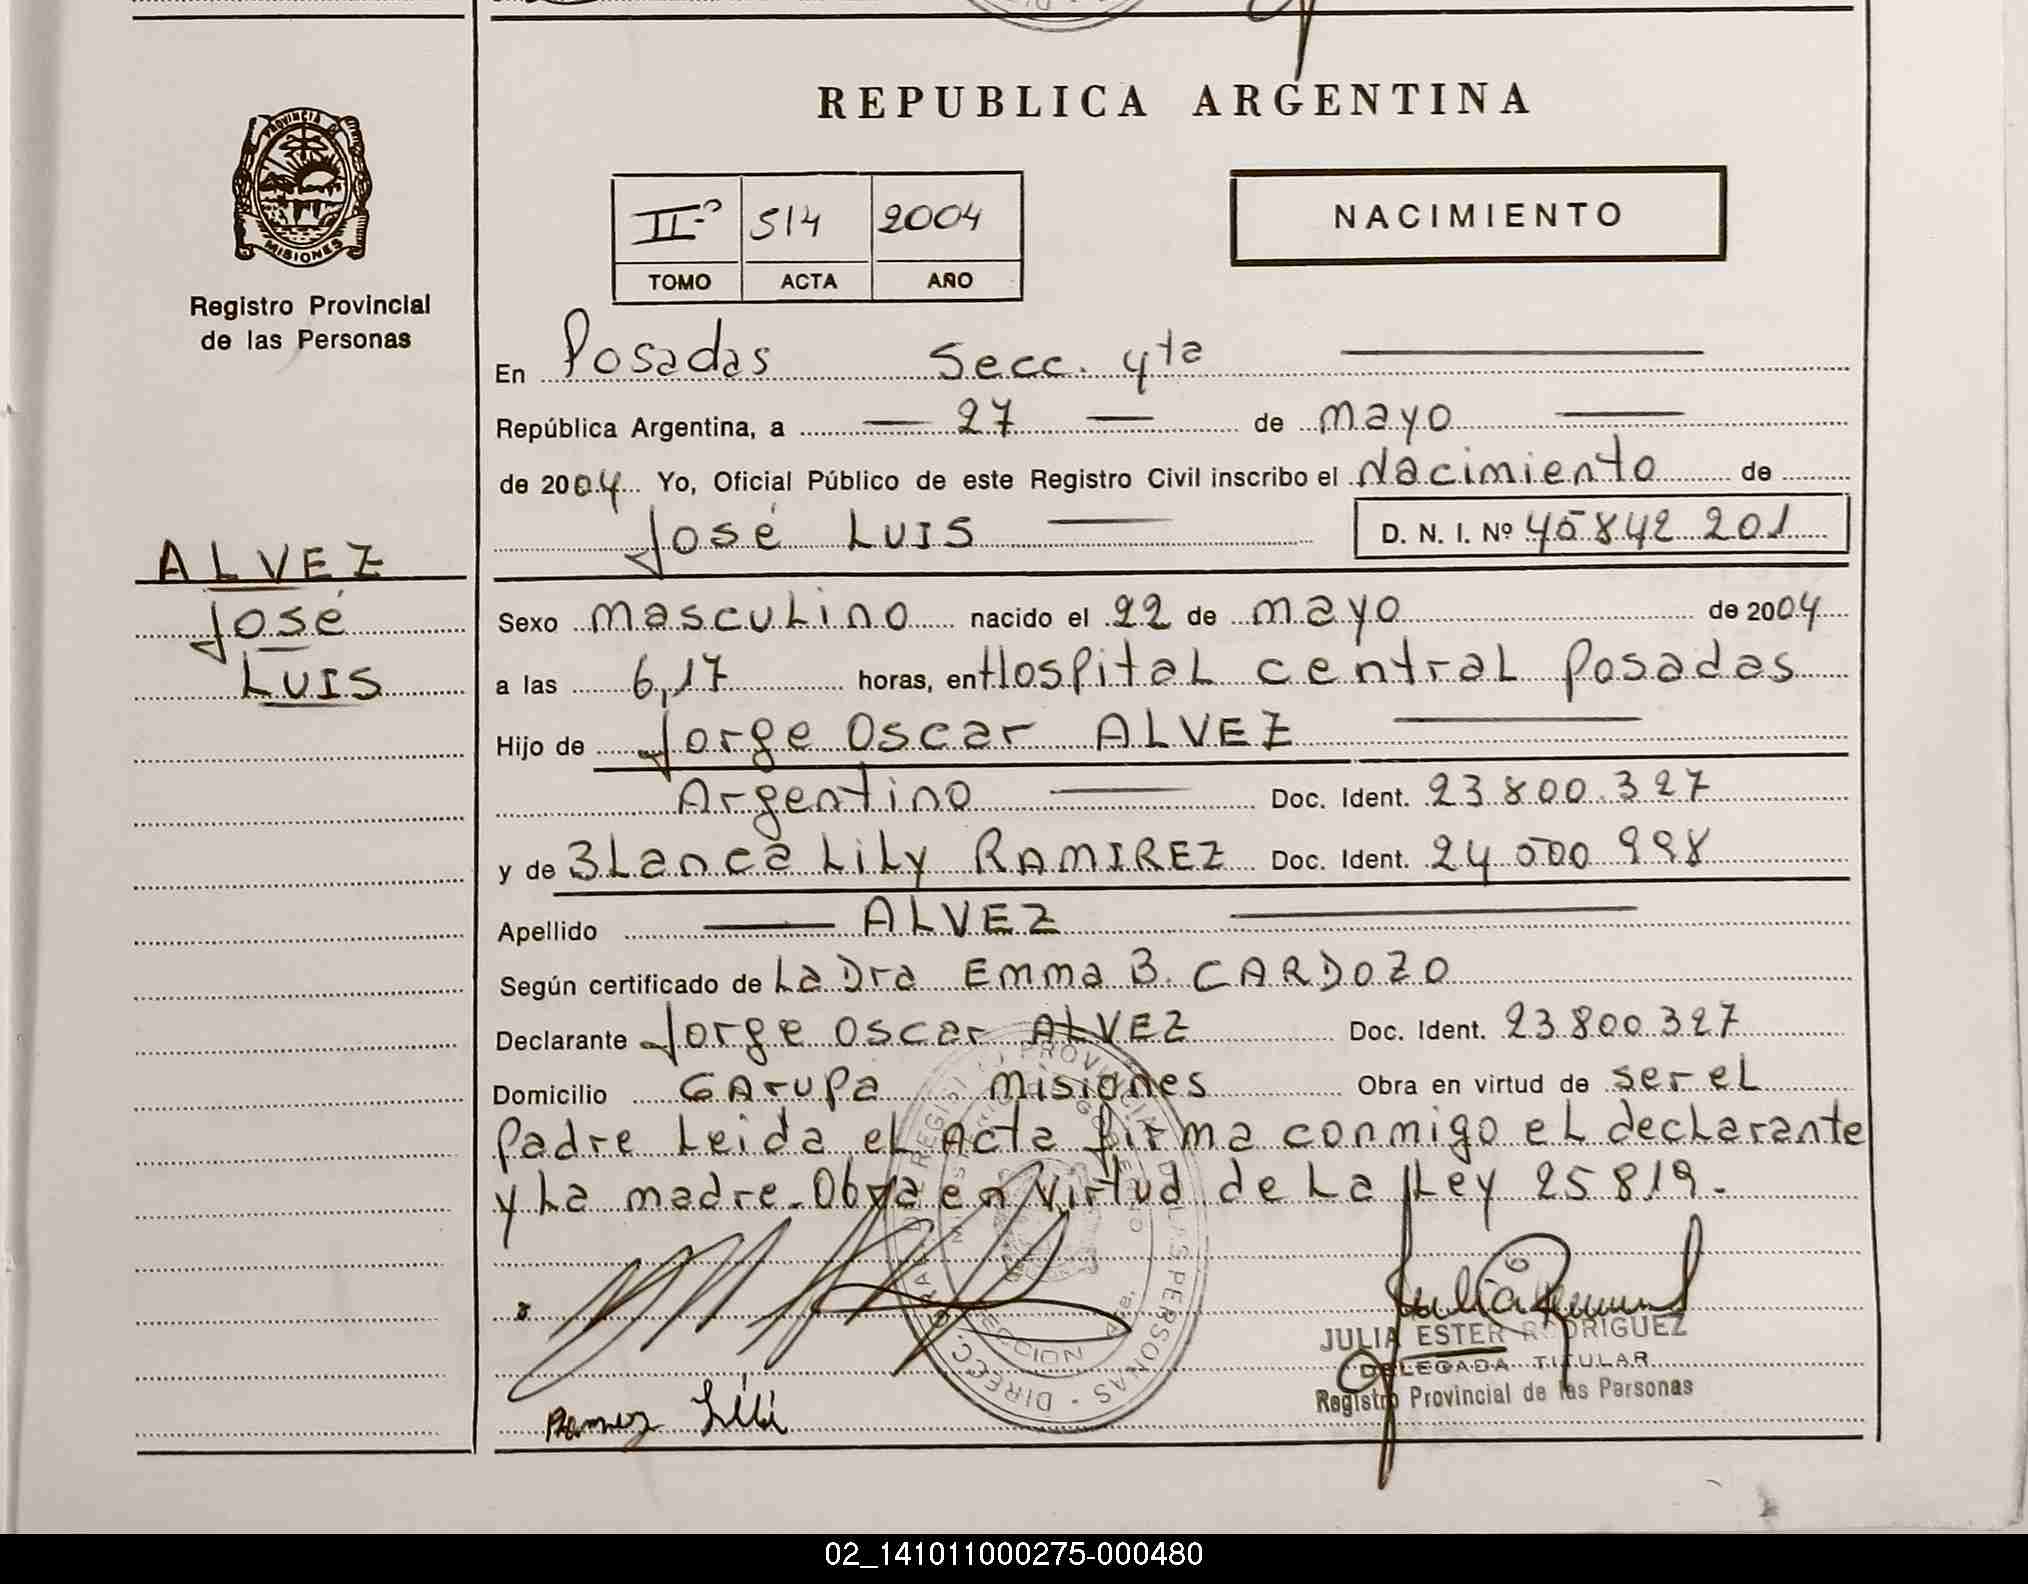 REPUBLICA ARGENTINA
PROVINCIA DE
MISIONES
Registro Provincial
de las Personas
IIº 514 2004
TOMO ACTA AÑO
NACIMIENTO
En Posadas Secc. 4ta
República Argentina, a 27 de mayo
de 2004 Yo, Oficial Público de este Registro Civil inscribo el Nacimiento de
José Luis D. N. I. Nº 45842201
ALVEZ
José
Luis
Sexo masculino nacido el 22 de mayo de 2004
a las 6,17 horas, en Hospital central Posadas
Hijo de Jorge Oscar ALVEZ
Argentino Doc. Ident. 23.800.327
y de Blanca Lily RAMIREZ Doc. Ident. 24 500 998
Apellido ALVEZ
Según certificado de La Dra Emma B. CARDOZO
Declarante Jorge Oscar ALVEZ Doc. Ident. 23.800.327
Domicilio Garupa Misiones Obra en virtud de ser el
Padre Leida el Acta firma conmigo el declarante
y La madre. Obra en virtud de La Ley 25819.
JULIA ESTER RODRIGUEZ
DELEGADA TITULAR
Registro Provincial de las Personas
Ramirez Lili
02_141011000275-000480